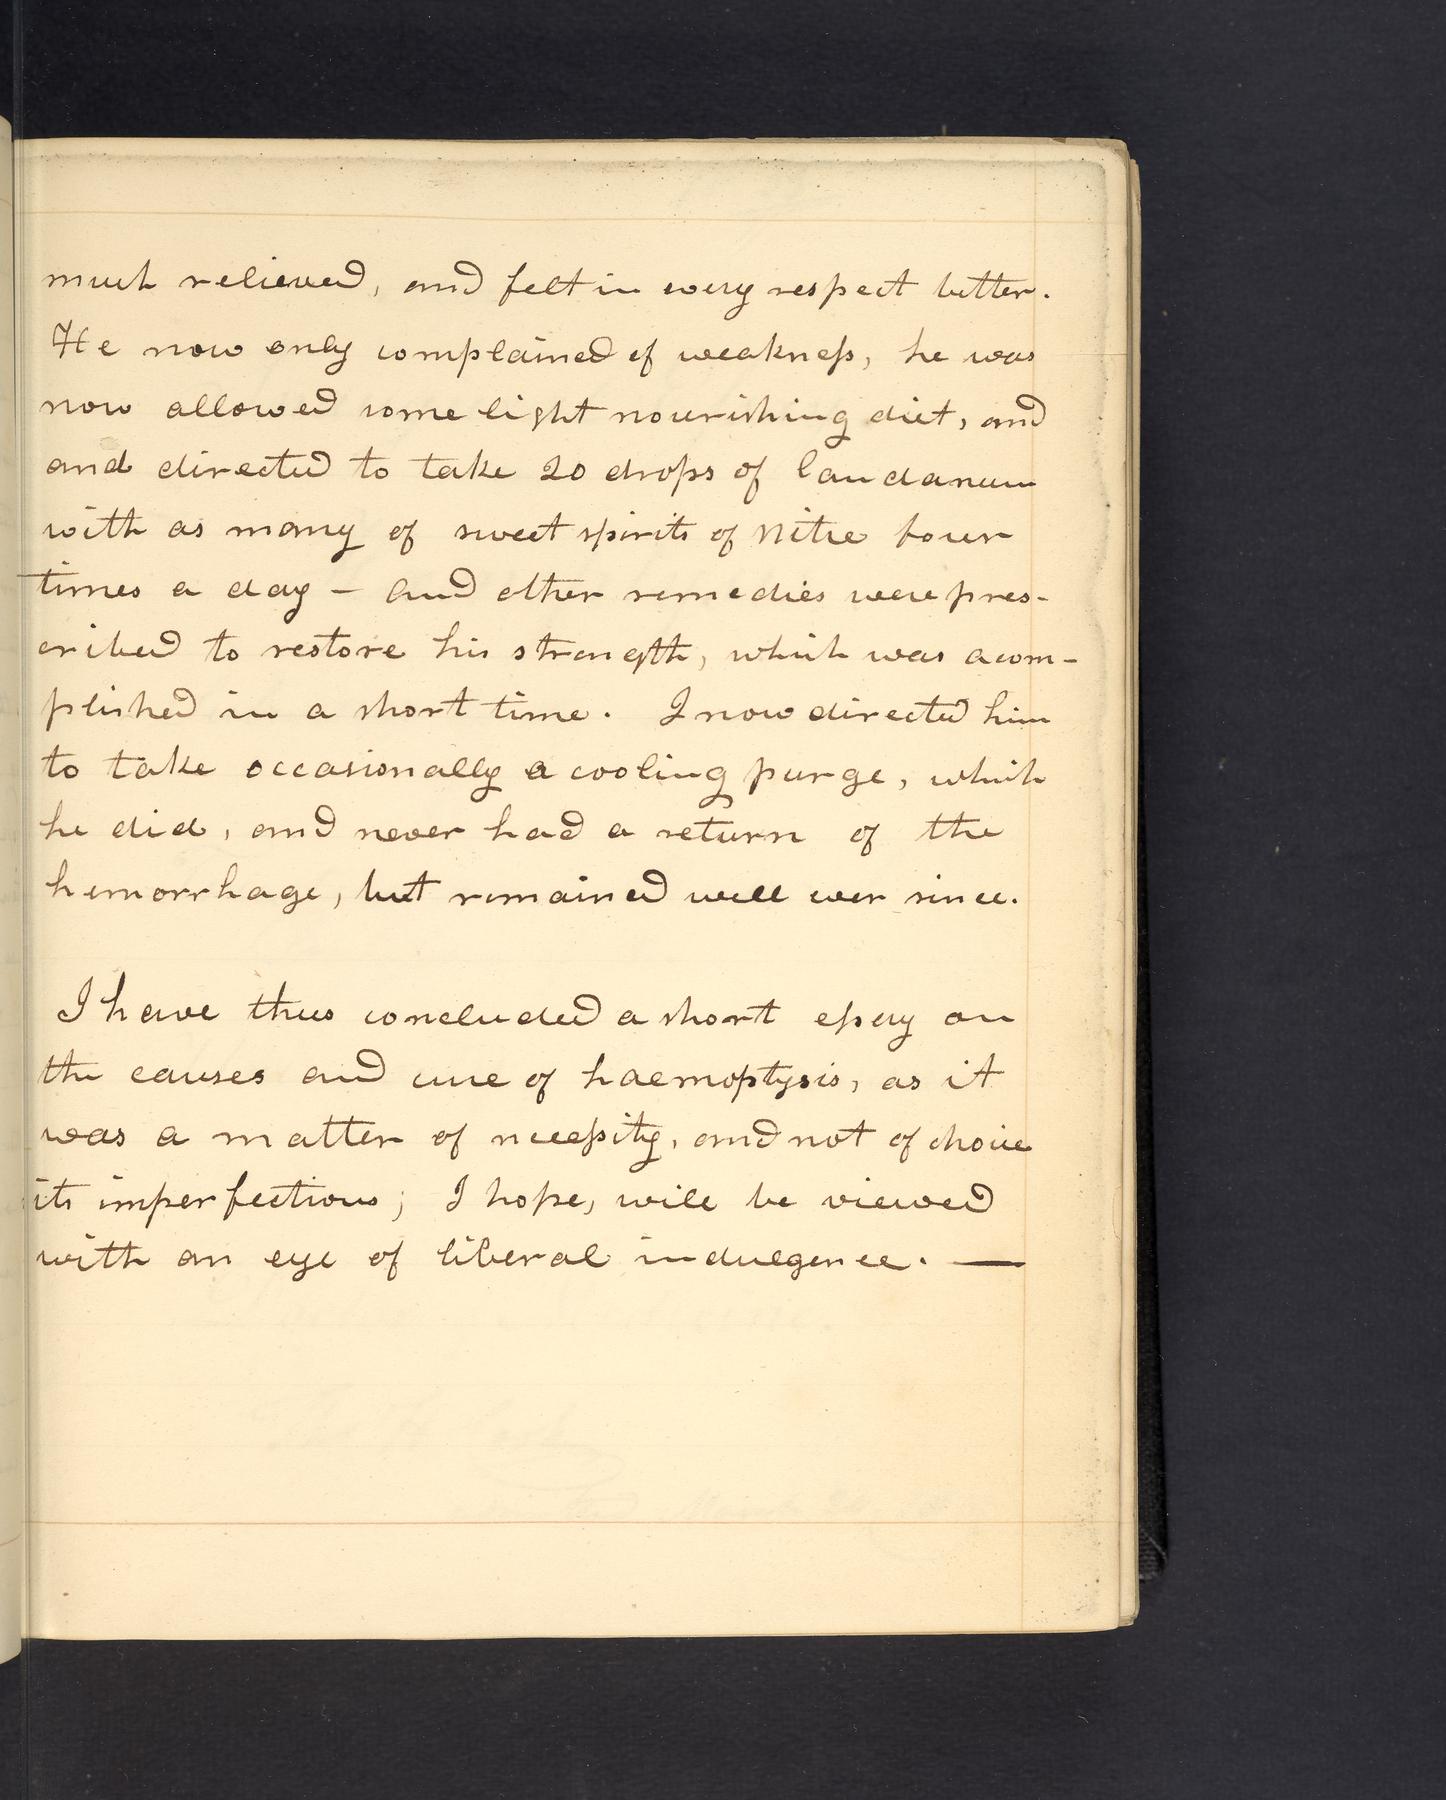 much relieved, and felt in every respect better.
He now only complained of weakneſs, he was
now allowed some light nourishing diet, and
and directed to take 20 drops of laudanum
with as many of sweet spirits of Nitre four
times a day – and other remedies were pres-
cribed to restore his strength, which was acom-
plished in a short time. I now directed him
to take occasionally a cooling purge, which
he did, and never had a return of the
hemorrhage, but remained well ever since.
I have thus concluded a short eſsay on
the causes and cure of haemoptysis, as it
was a matter of neceſsity, and not of choice
its imperfections; I hope, will be viewed
with an eye of liberal indulgence. —